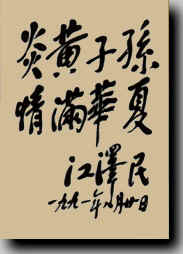 炎黃子孫
情滿華夏
江澤民
一九九一年八月廿日